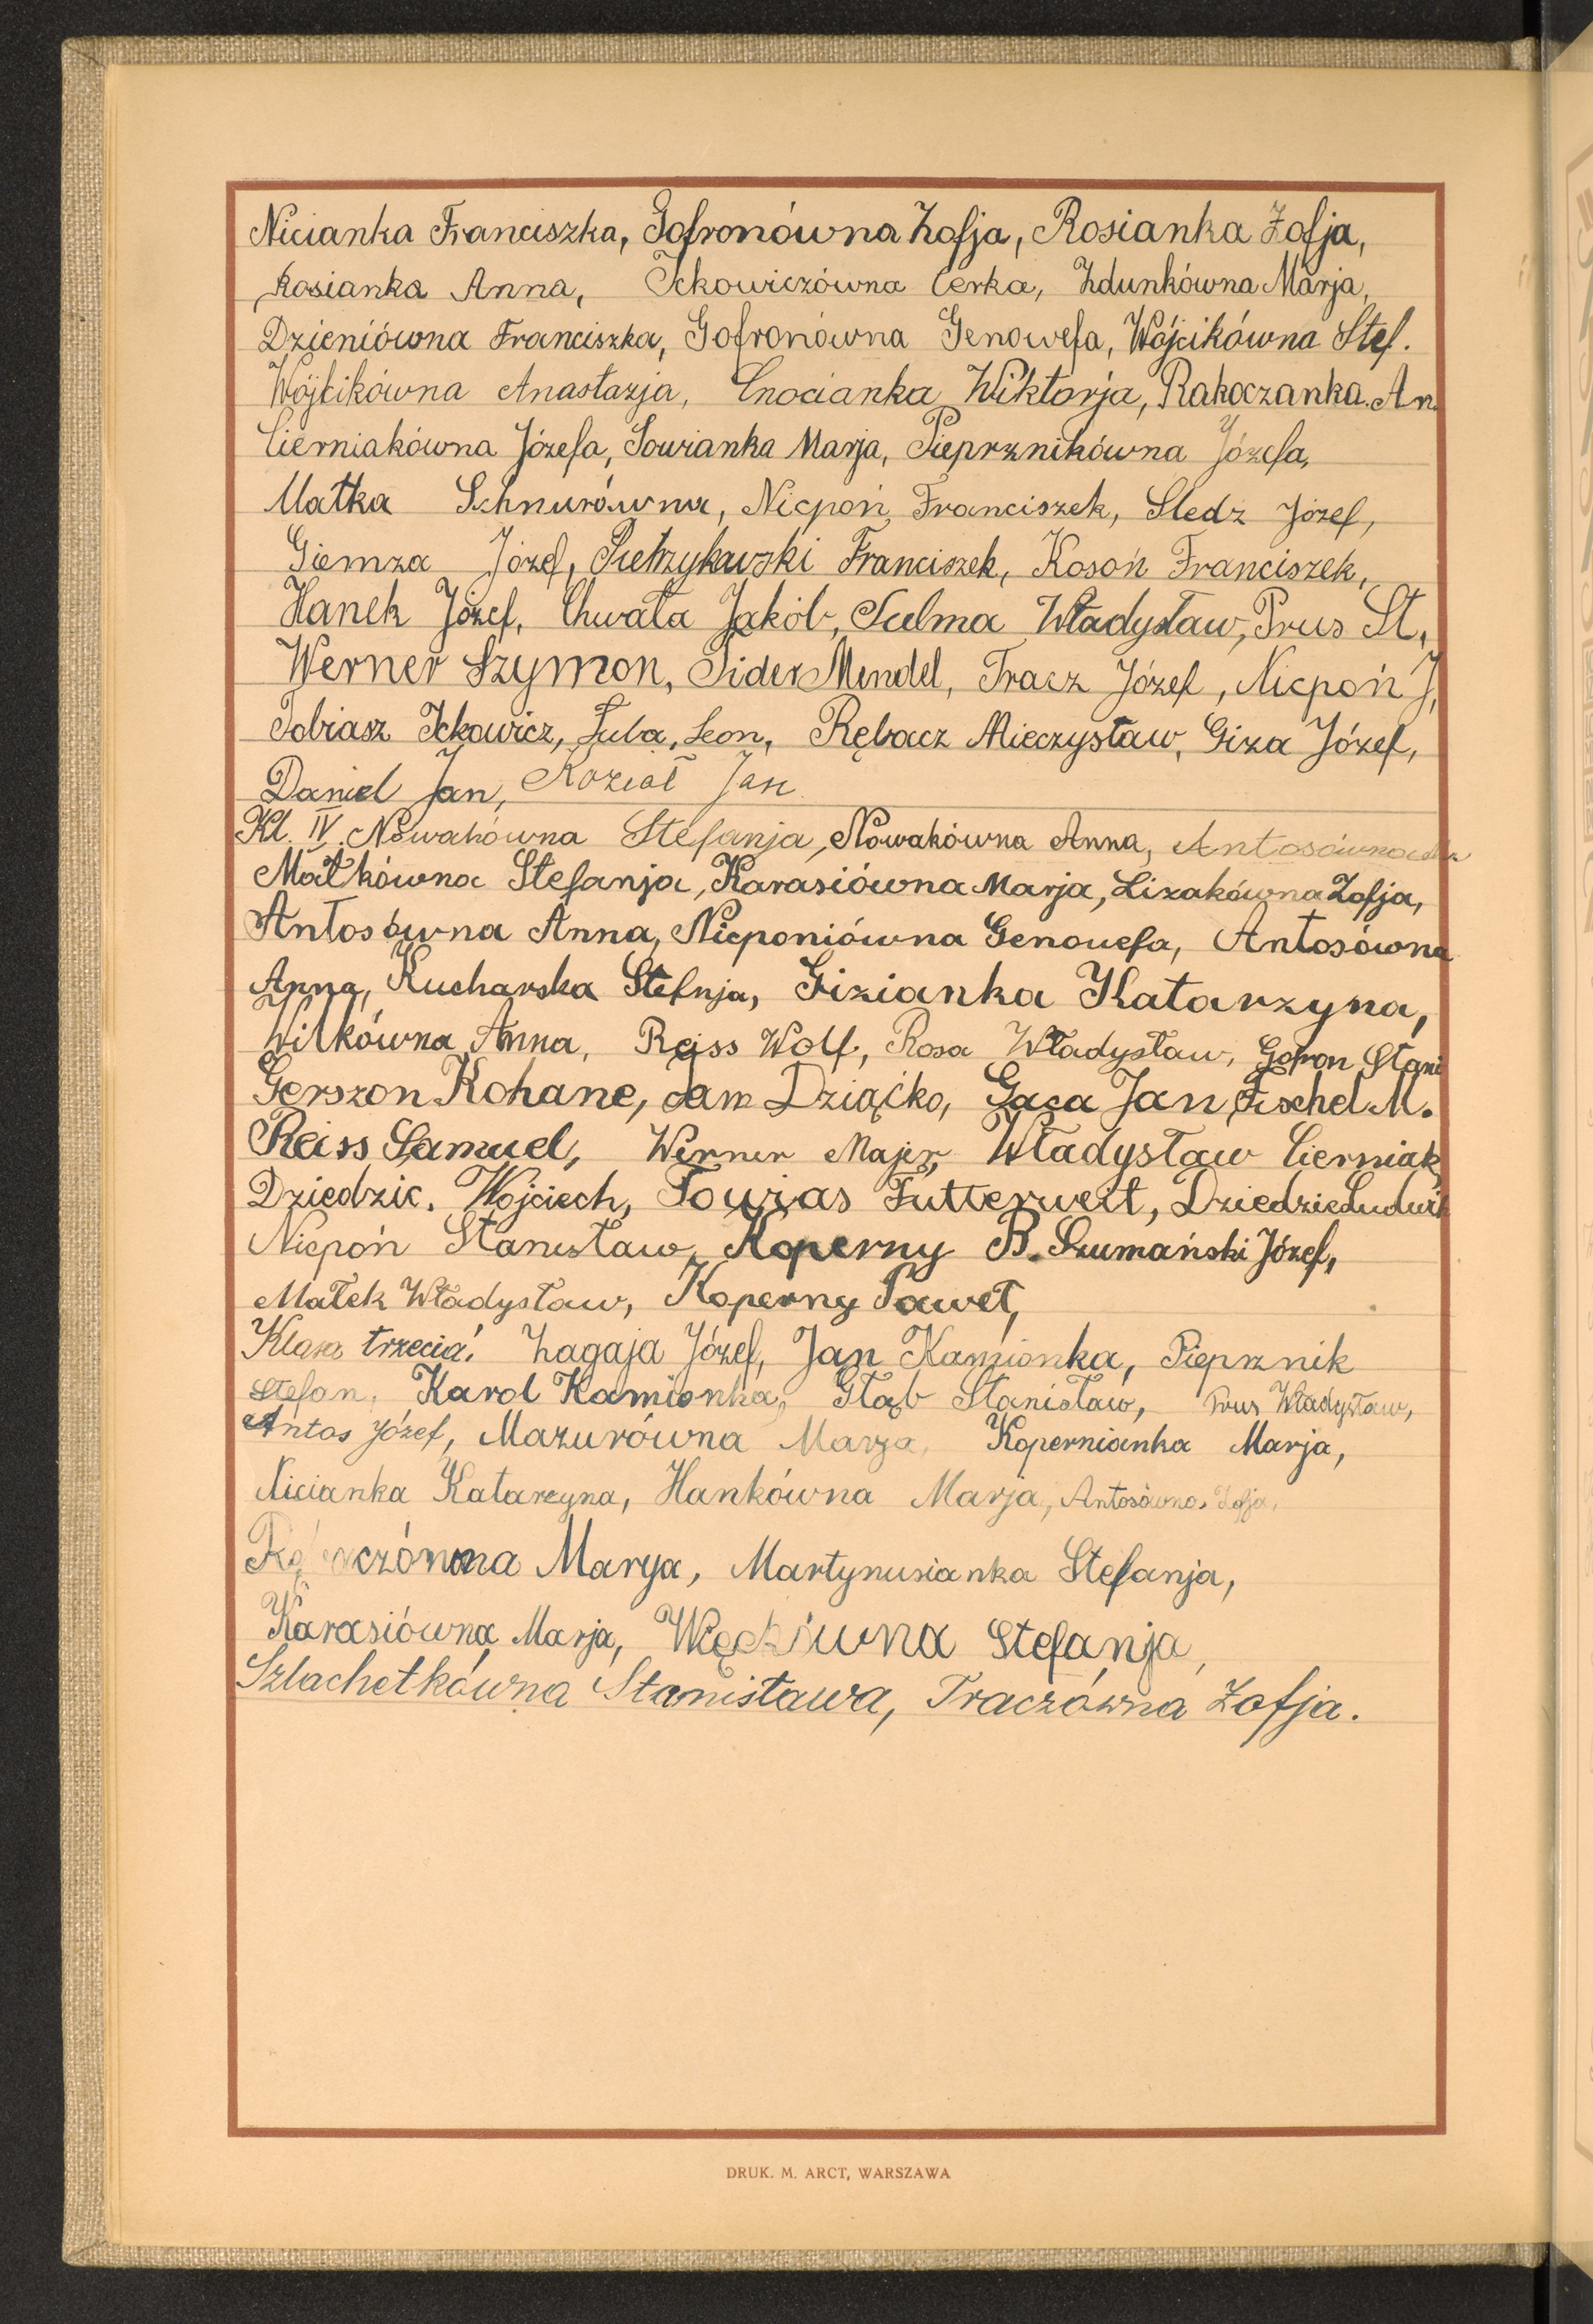 Nicianka Franciszka, Gofronówna Zofja, Rosianka Zofja,
Rosianka Anna, Ickowiczówna Cerka, Zdunkówna Marja,
Dzieniówna Franciszka, Gofronówna Genowefa, Wójcikówna Stef.
Wójcikówna Anastazja, Cnocianka Wiktorja, Rakoczanka An.
Cierniakówna Józefa, Sowianka Marja, Pieprznikówna Józefa,
Matka Schnurówna, Nicpoń Franciszek, Sledz Józef,
Giemza Józef, Pietrzykowski Franciszek, Kosoń Franciszek,
Hanek Józef, Chwała Jakób, Szelma Władysław, Prus St,
Werner Szymon, Sider Mendel, Tracz Józef, Nicpoń J,
Tobiasz Ickowicz, Luba, Leon, Rębacz Mieczysław, Giza Józef,
Daniel Jan, Kozioł Jan
Kl. IV. Nowakówna Stefanja, Nowakówna Anna, Antosówna
Małkówna Stefanja, Karasiówna Marja, Lizakówna Zofja,
Antosówna Anna, Nicponiówna Genowefa, Antosówna
Anna, Kucharska Stefnja, Gizianka Katarzyna,
Wilkówna Anna, Reiss Wolf, Rosa Władysław, Gofron Stani
Gerszon Kohane, Jam Dziąćko, Gaca Jan, Fischel M.
Reiss Samuel, Werner Majer, Władysław Cierniak
Dziedzic. Wojciech, Towjas Futterweit, Dziedzic Ludwik
Nicpoń Stanisław, Koperny B. Szumański Józef,
Małek Władysław, Koperny Paweł,
Klasa trzecia: Zagaja Józef, Jan Kamionka, Pieprznik
Stefan, Karol Kamionka, Głąb Stanisław, Prus Władysław,
Antos Józef, Mazurówna Marja, Kopernianka Marja,
Nicianka Katarzyna, Hankówna Marja, Antosówna Zofja,
Marya, Martynusianka Stefanja,
Karasiówna Marja, Stefanja,
Szlachetkówna Stanisława, Traczówna Zofja.
DRUK. M. ARCT, WARSZAWA